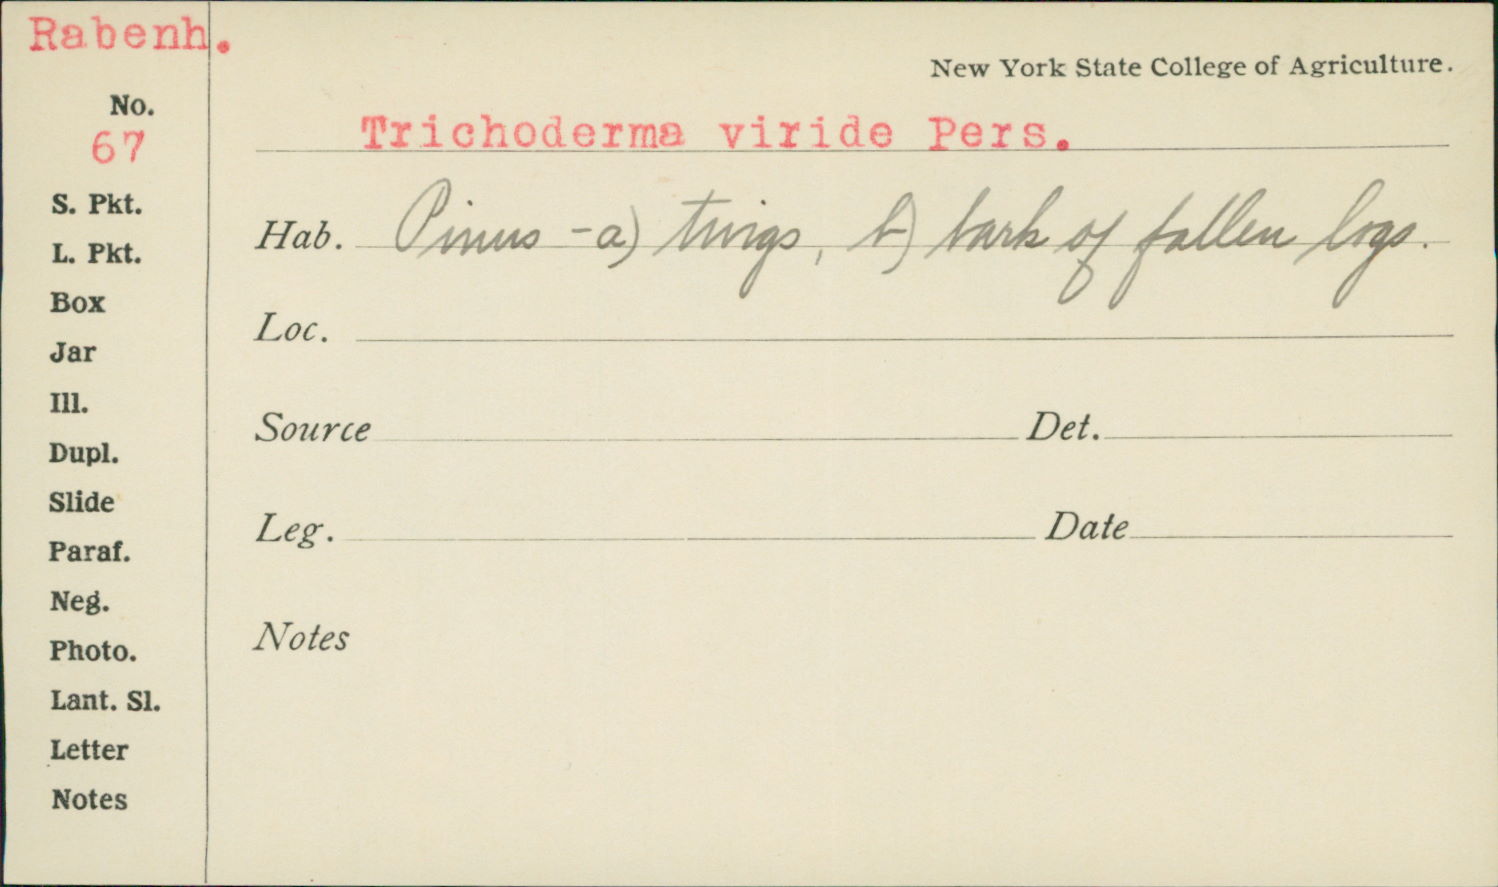 Rabenh.
New York State College of Agriculture.
No.
67
Trichoderma viride Pers.
S. Pkt.
L. Pkt.
Box
Jar
Ill.
Dupl.
Slide
Paraf.
Neg.
Photo.
Lant. Sl.
Letter
Notes
Hab. Pinus - a) twigs, b) bark of fallen logs.
Loc.
Source Det.
Leg. Date
Notes